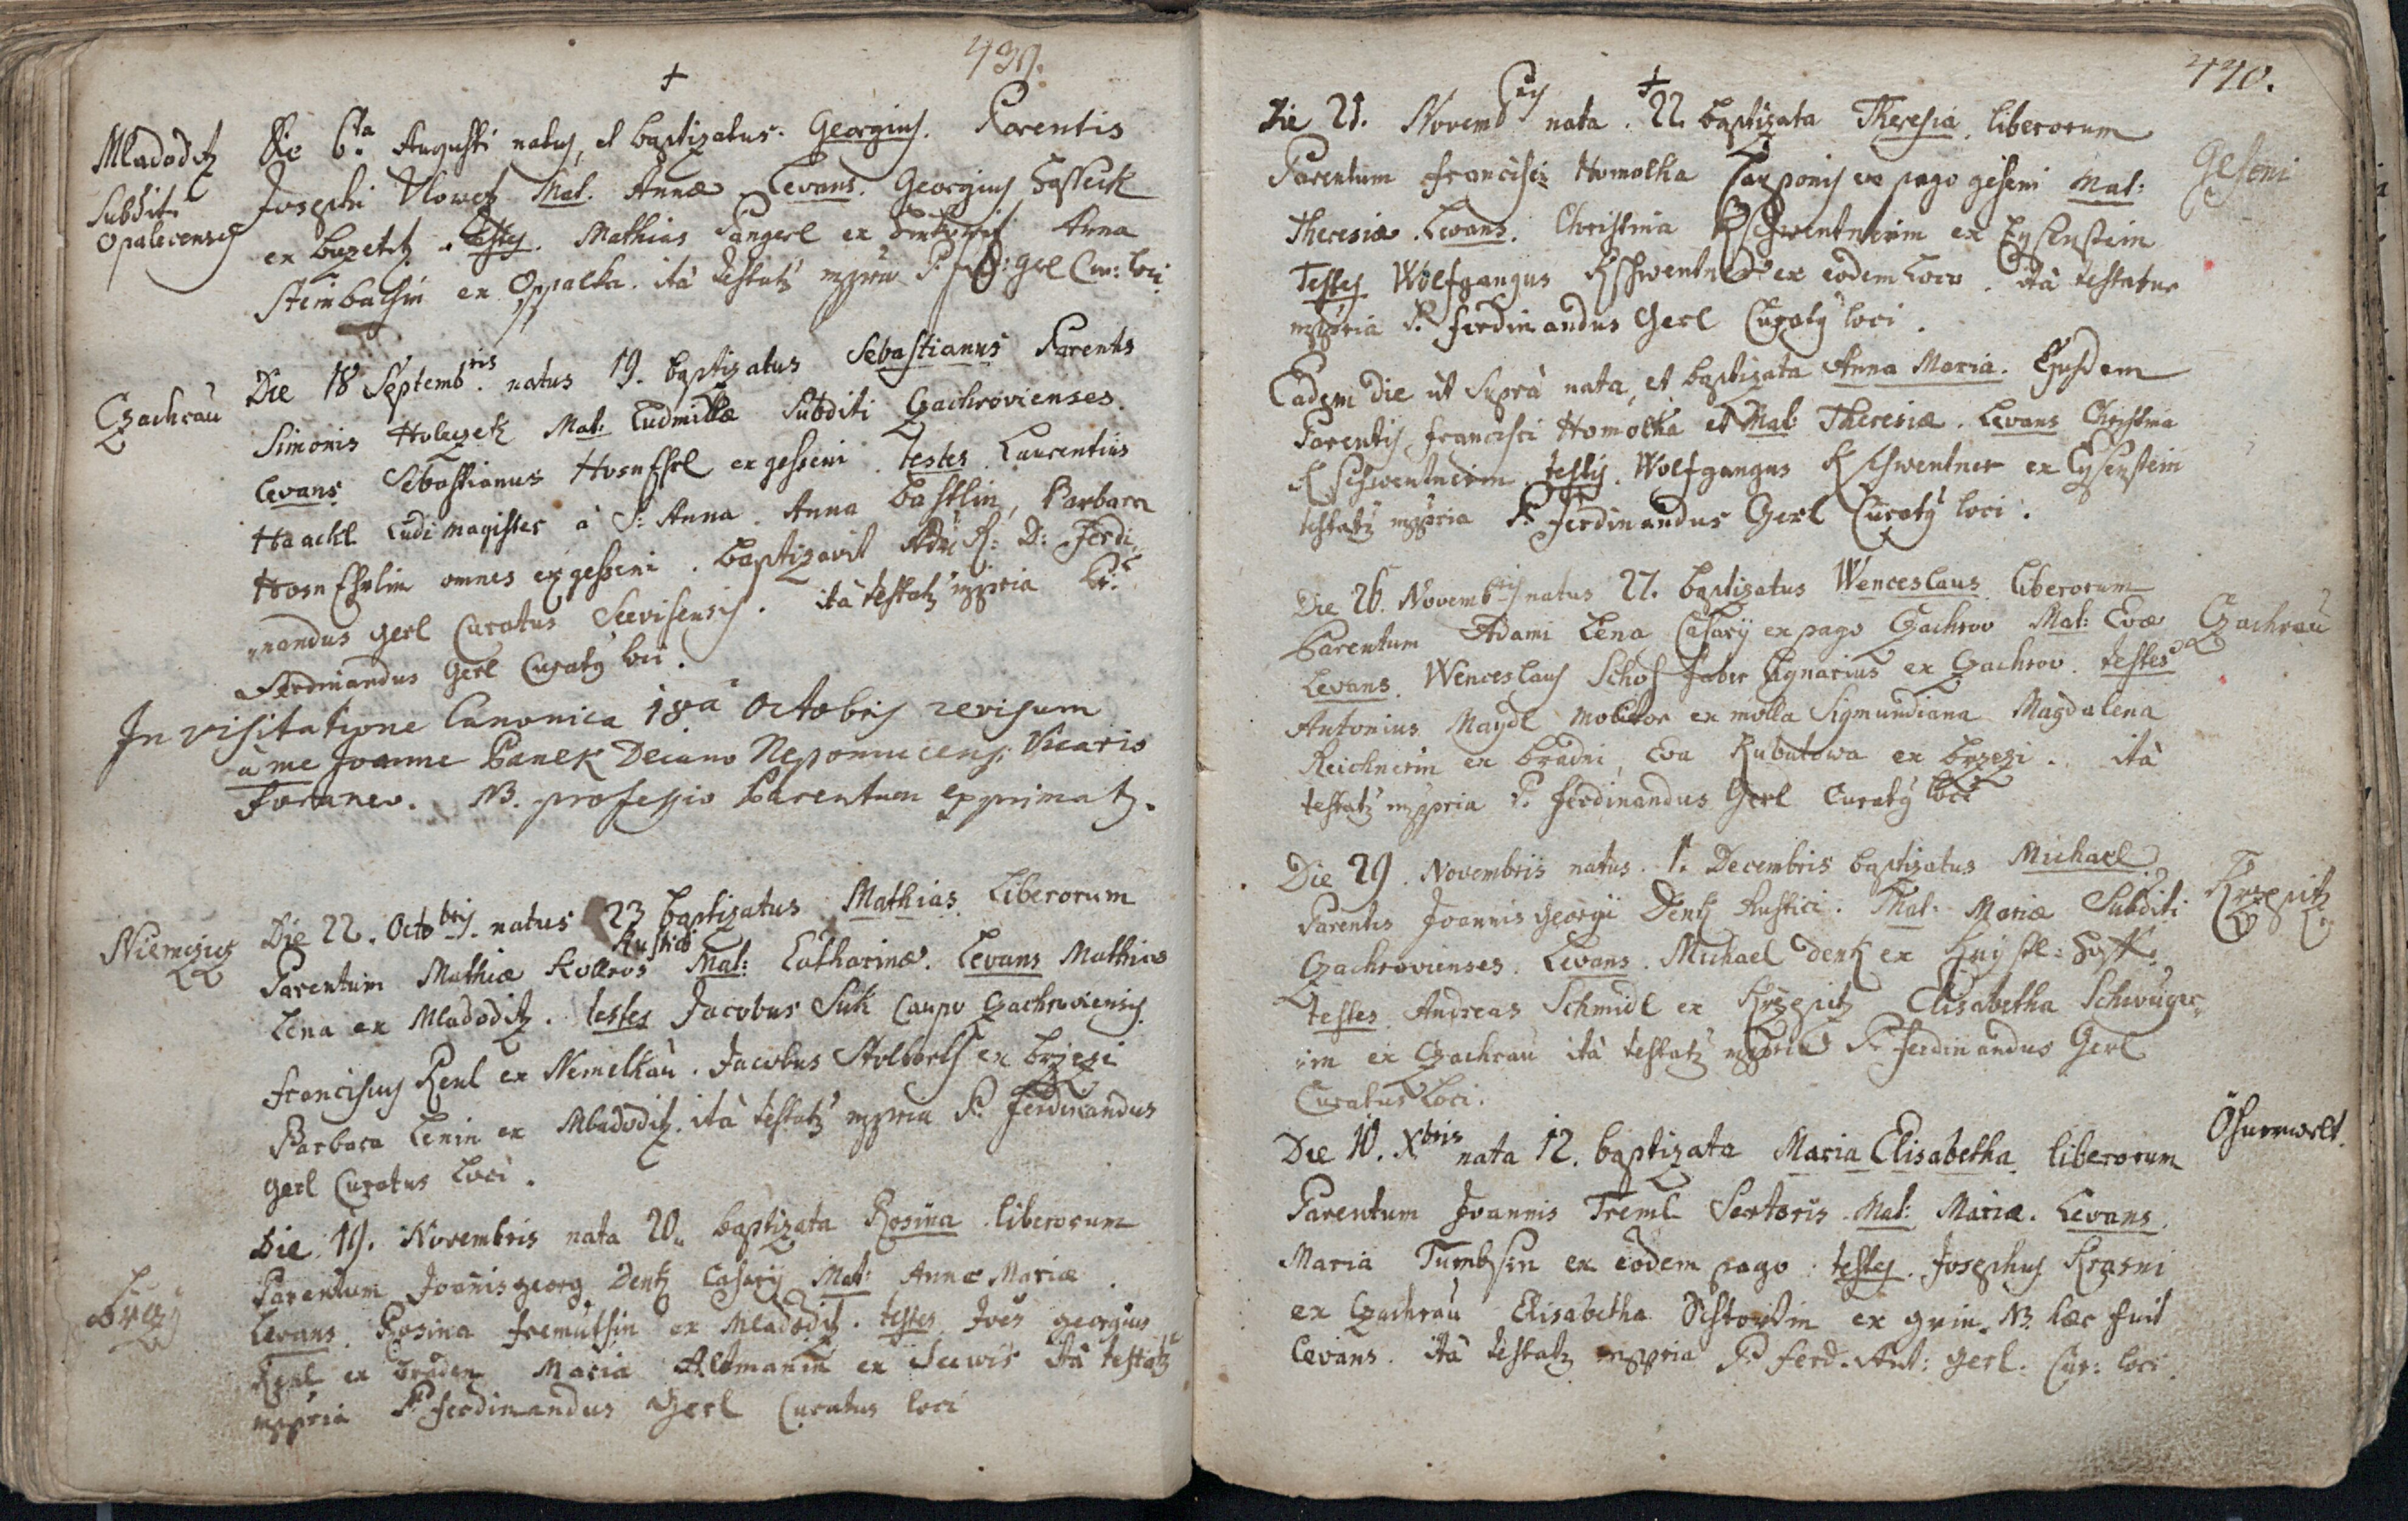 439.
+
Mladoditz
Subditi
Opalecensis
Die 6ta Augusti natus, et baptizatus Georgius. Parentis
Josephi Mat. Annæ Levans. Georgius
ex testes. Mathias ex Anna
ex Oppalka. ità testatz mppria P. Gerl Cur: loci
Czachrau
Die 18 Septembris. natus 19. baptizatus Sebastianus Parentis
Simonis Mat: Ludmillæ Subditi Czachrovienses.
Levans Sebastianus ex gesseni. testes Laurentius
Haackl Ludi magister à S: Anna. Anna Bastlin, Barbara
omnes ex gesseni. baptizavit R: D: Ferdi-
nandus Gerl Curatus Seevisensis. ità testatz mppria
Ferdinandus Gerl Curatq loci.
In visitatione Canonica 18a Octobris revisum
à me Joanne Panek Decano Nepomucensi Vicario
foraneo. NB. professio Parentum exprimatz.
Niemczicz
Die 22. Octobris. natus 23 baptizatus Mathias Liberorum
Rustici
Parentum Mathiæ Kollros Mat: Catharinæ. Levans Mathias
Lena ex Mladoditz. testes Jacobus Suk Caupo Czachroviensis
Franciscus Renl ex Nemelkau. Jacobus ex Brzezi
Barbara Lenin ex Mladoditz. ità testatz mppria P. Ferdinandus
Gerl Curatus loci.
Die 19. Novembris nata 20. baptizata Rosina liberorum
Parentum Joanis georg Dentz Casarij Mat: Annæ Mariæ.
Levans Rosina ex Mladoditz. testes Joes georgius
ex Maria Altmanin ex Seewis ità testatz
mppria P. Ferdinandus Gerl Curatus loci
440.
+
Geseni
Die 21. Novembris nata. 22. baptizata Theresia. liberorum
Parentum Francisci Homolka Cauponis ex pago geseni Mat:
Theresiæ. Levans. Christina Kschwentnerin ex Eysenstein
Testes Wolfgangus Kschwentner ex eodem loco. ità testatur
mppria P. Ferdinandus Gerl Curatq loci.
Eadem die ut Suprà nata, et baptizata Anna Maria. Ejusdem
Parentis Francisci Homolka et Mat: Theresiæ. Levans Christina
Kschwentnerin. testis. Wolfgangus Kschwentner ex Eysenstein
testatz mppria P. Ferdinandus Gerl Curatq loci.
Czachrau
Die 26. Novembris natus 27. baptizatus Wenceslaus liberorum
Parentum Adami Lena Casarij ex pago Czachrov Mat: Evæ
Levans. Wenceslaus Schos faber lignarius ex Czachrov. testes
Antonius Maydl molitor ex molla Sigmundiana Magdalena
Reichnerin ex Bradni, Eva Kubatowa ex Brzezi. ità
testatz mppria P. Ferdinandus Gerl Curatq loci
Krzepitz
Die 29. Novembris natus. 1. Decembris baptizatus Michael
Parentis Joannis Georgii Dentz Rustici. Mat. Mariæ Subditi
Czachrovienses. Levans. Michael Dentz ex
testes. Andreas Schmidl ex Krzepitz Elisabetha
in ex Czachrau ità testatz mppria P. Ferdinandus Gerl
Curatus loci.
Die 10. Xbris nata 12. baptizata Maria Elisabetha liberorum
Parentum Joannis Treml Sartoris Mat: Mariæ. Levans.
Maria ex eodem pago. testes. Josephus Krasni
ex Czachrau Elisabetha ex grin. NB. hæc fuit
Levans. ità testatz mppria P. Ferd. Ant: Gerl. Cur: loci.